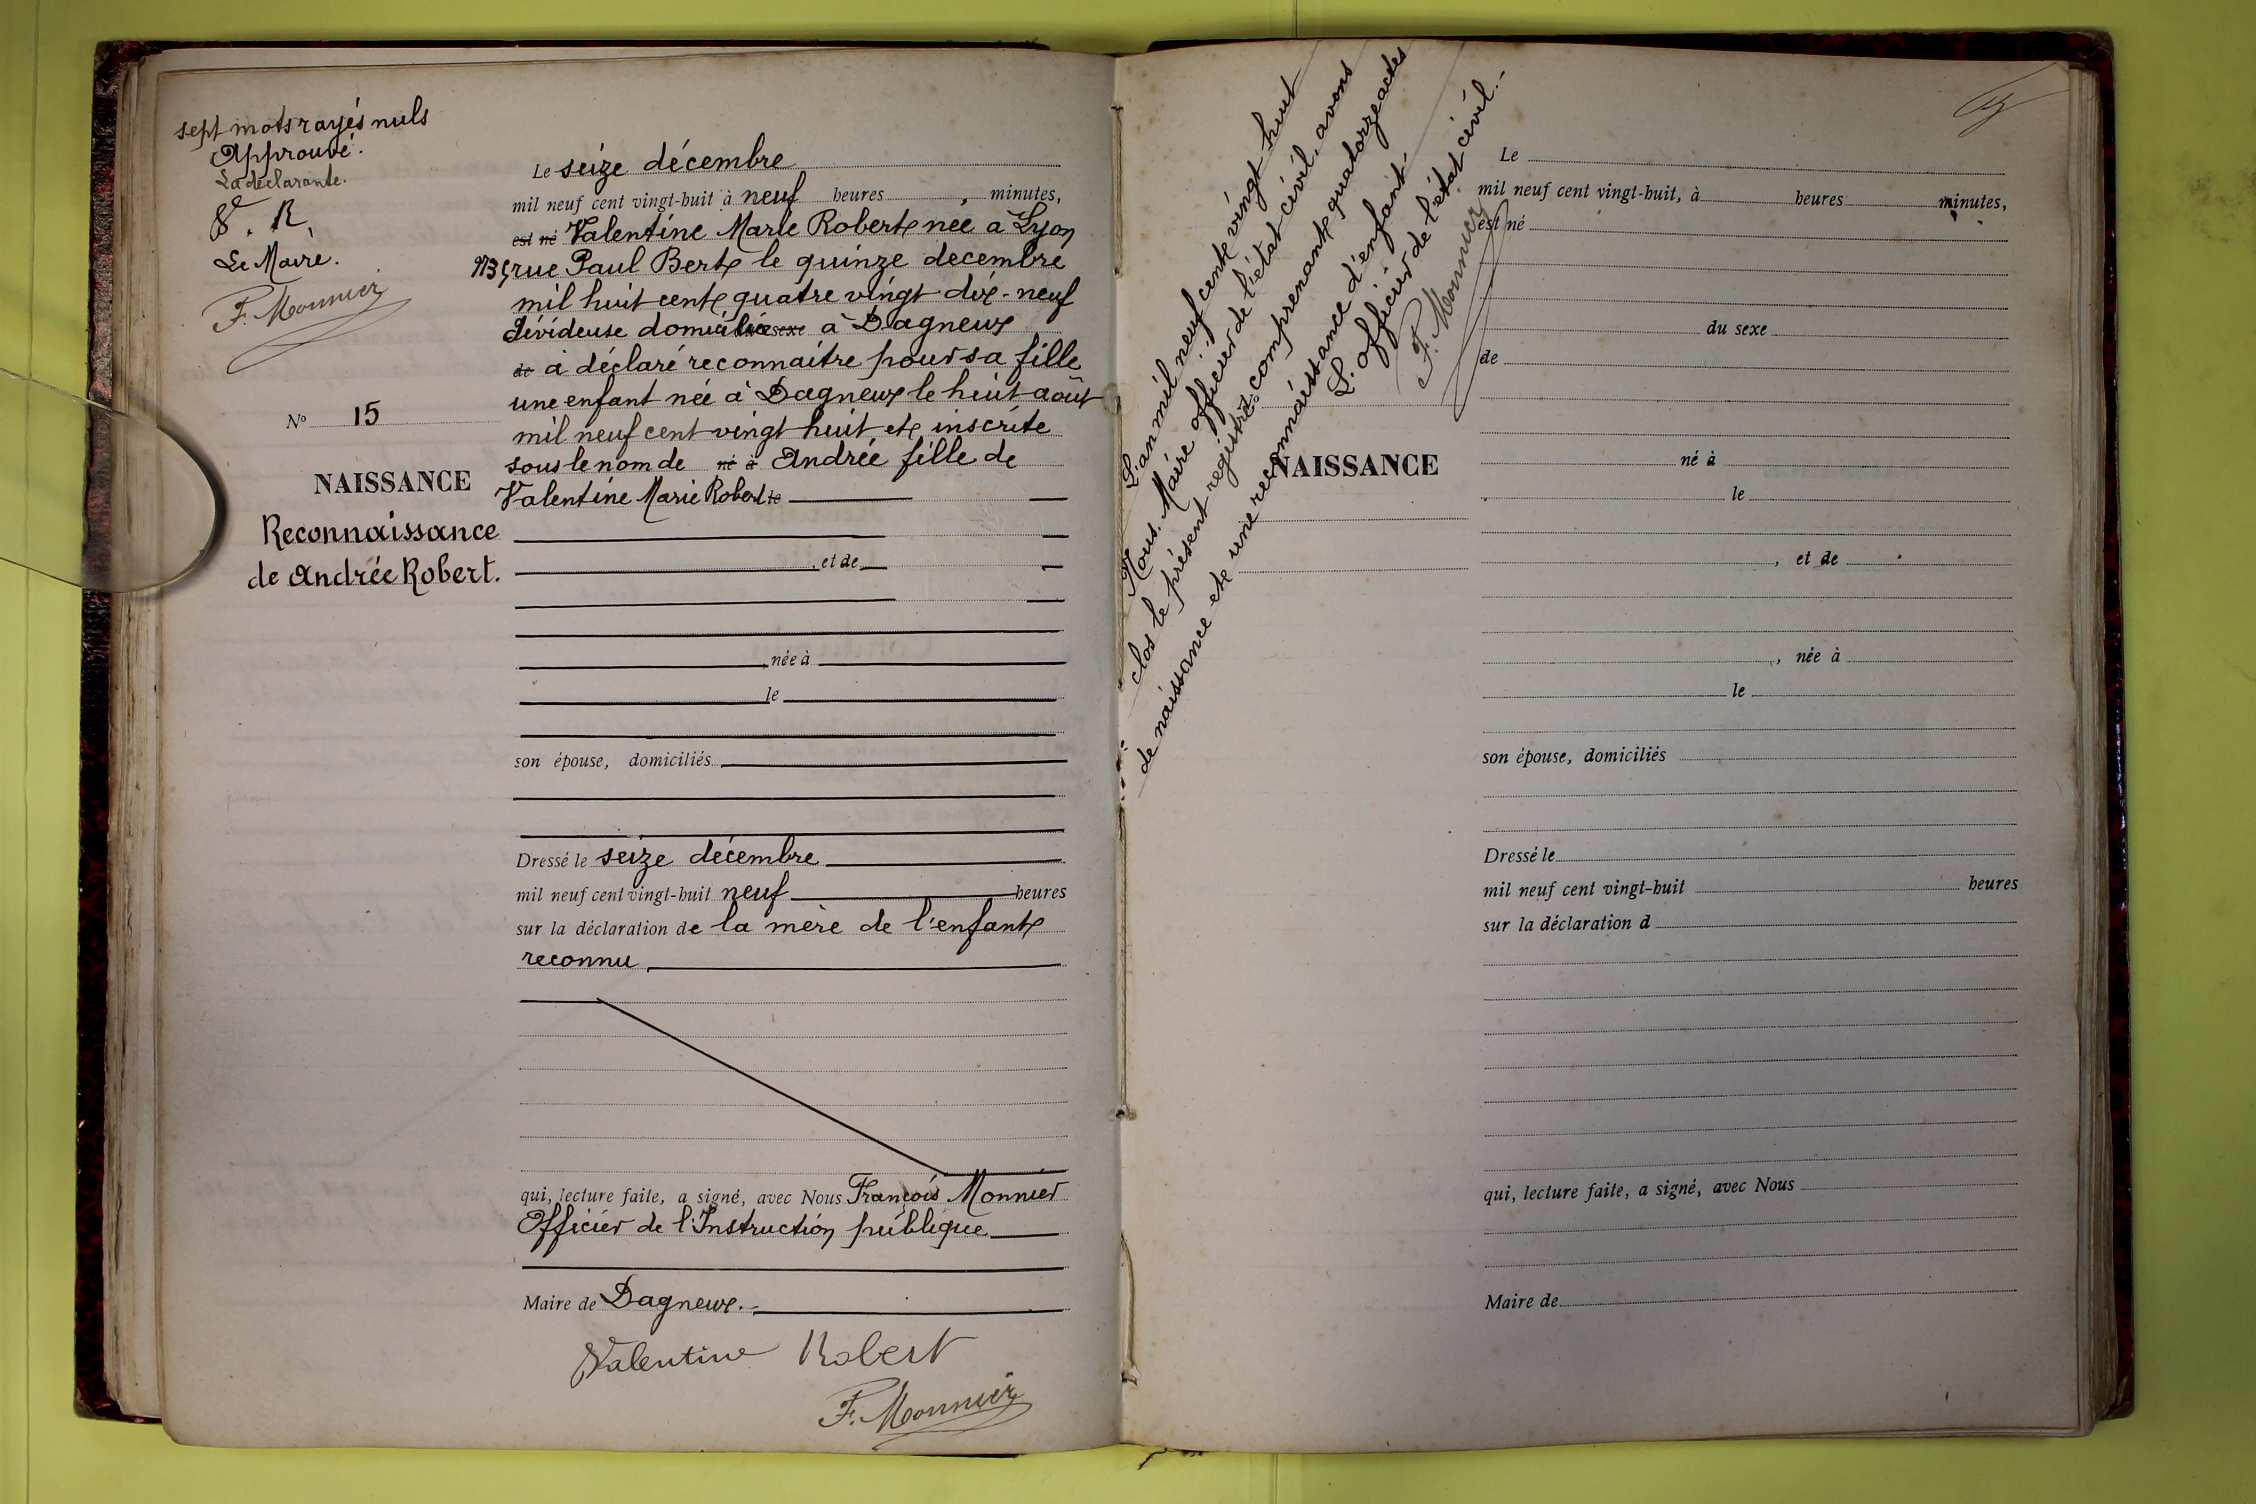 sept mots rayés nuls
Approuvé.
La déclarante.
V. R.
Le Maire.
F. Monnier
N° 15
NAISSANCE
Reconnaissance
de Andrée Robert.
Le seize décembre
mil neuf cent vingt-huit à neuf heures , minutes,
est né Valentine Marie Robert née à Lyon
rue Paul Bert le quinze decembre
mil huit cent quatre vingt dix-neuf
dévideuse domiciliée sexe à Dagneux
de a déclaré reconnaitre pour sa fille
une enfant née à Dagneux le huit août
mil neuf cent vingt huit et inscrite
sous le nom de né à Andrée fille de
Valentine Marie Robert le
, et de
, née à
le
son épouse, domiciliés
Dressé le seize décembre
mil neuf cent vingt-huit neuf heures
sur la déclaration de la mère de l'enfant
reconnu
qui, lecture faite, a signé, avec Nous François Monnier
Officier de l'Instruction publique
Maire de Dagneux.
Valentine Robert
F. Monnier
L'an mil neuf cent vingt huit
Nous. Maire officier de l'état civil, avons
clos le présent registre comprenant quatorze actes
de naissance et une reconnaissance d'enfant.
L'officier de l'état civil.
F. Monnier
NAISSANCE
Le
mil neuf cent vingt-huit, à heures minutes,
est né
du sexe
de
né à
le
, et de
, née à
le
son épouse, domiciliés
Dressé le
mil neuf cent vingt-huit heures
sur la déclaration d
qui, lecture faite, a signé, avec Nous
Maire de